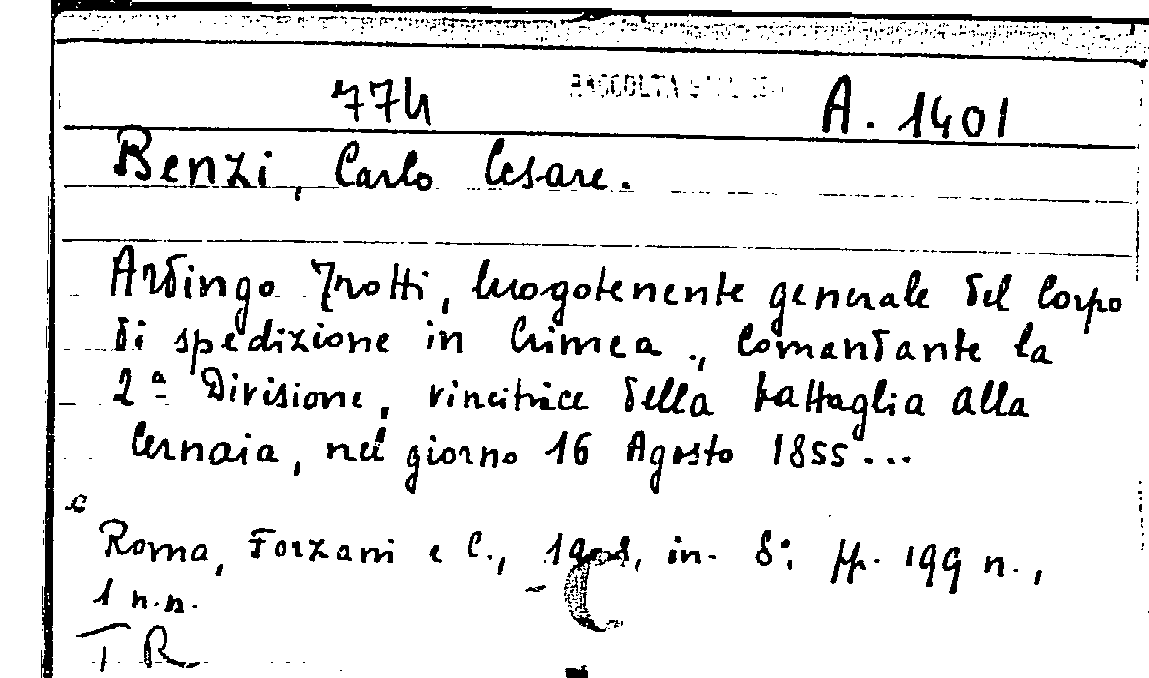 774 RACCOLTA A. 1401
Benzi, Carlo Cesare.
Ardingo Trotti, luogotenente generale del Corpo
di spedizione in Crimea ., Comandante la
2ª Divisione, vincitrice della battaglia alla
Cernaia, nel giorno 16 Agosto 1855...
c
Roma, Forzani e C., in-8°, pp. 199 n.,
1 n.n.
T R